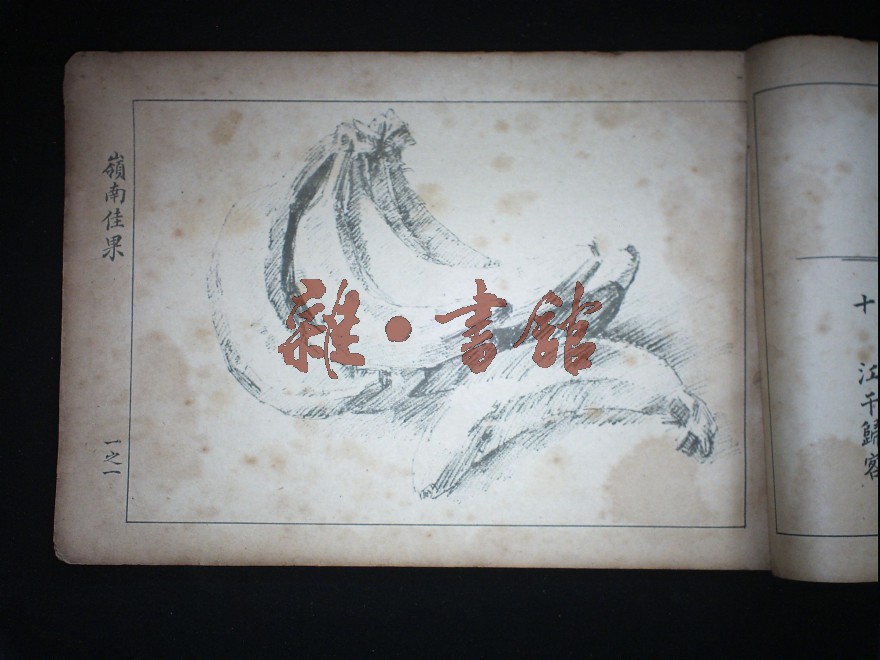 嶺南佳果
一之一
雜·書館
十
江干歸客